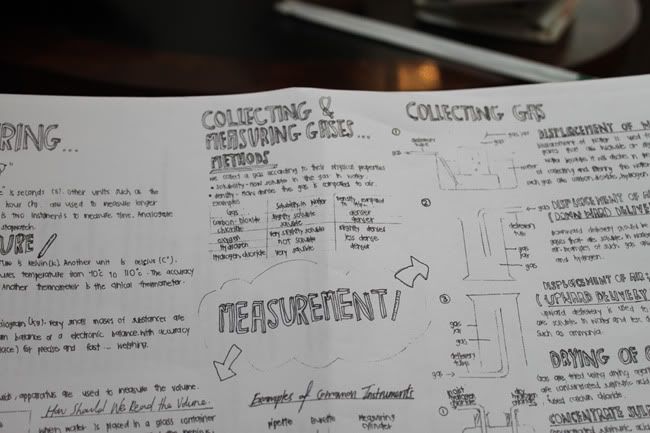 RING...
e is seconds (s). Other units such as the
hour (h) are used to measure longer
is two instruments to measure time. Analogue
stopwatch.
URE
is Kelvin (K). Another unit is celcius (C°).
ures temperature from -10°c to 110°c. The accuracy
Another thermometer is the clinical thermometer.
ilogram (kg). Very small masses of substances are
balance or a electronic balance with accuracy
place) for precise and fast weighing.
apparatus are used to measure the volume.
How Should We Read the Volume.
when water is placed in a glass container
COLLECTING &
MEASURING GASES...
METHODS
We collect a gas according to their physical properties
• solubility - how soluble is the gas in water
• density - how dense the gas is compared to air.
examples
Gas Solubility in Water Density compared to air
carbon-dioxide slightly soluble denser
chlorine soluble denser
oxygen very slightly soluble slightly denser
hydrogen not soluble less dense
hydrogen chloride very soluble denser
MEASUREMENT
Examples of Common Instruments
Pipette Burette Measuring
cylinder
COLLECTING GAS
① delivery tube gas jar
gas water
DISPLACEMENT OF
Displacement of water is used
②
gas
delivery tube
gas jar
gas
DISPLACEMENT OF
(DOWNWARD DELIVERY
Downward delivery
gases that are soluble in water
③
gas jar
gas
delivery tube
gas
DISPLACEMENT OF AIR
(UPWARD DELIVERY
Upward delivery is used to
are soluble in water and less
such as ammonia.
DRYING OF G
Gas are dried using drying agents
are concentrated sulphuric acid
fused calcium chloride.
①
CONCENTRATE SUL
concentrated sulphuric acid